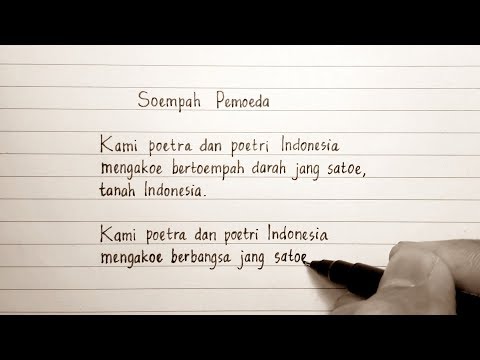 Soempah Pemoeda
Kami poetra dan poetri Indonesia
mengakoe bertoempah darah jang satoe,
tanah Indonesia.
Kami poetra dan poetri Indonesia
mengakoe berbangsa jang satoe